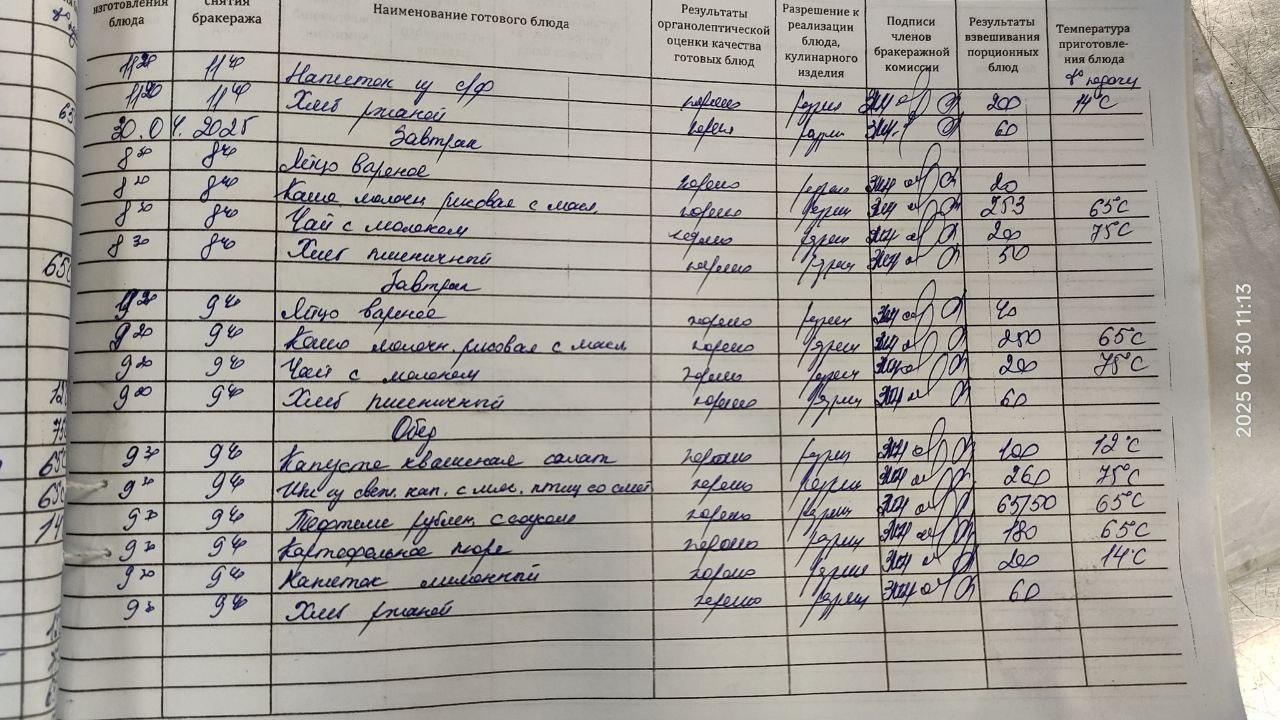 изготовления блюда | снятия бракеража | Наименование готового блюда | Результаты органолептической оценки качества готовых блюд | Разрешение к реализации блюда, кулинарного изделия | Подписи членов бракеражной комиссии | Результаты взвешивания порционных блюд | Температура приготовления блюда t° подачи
11 20 | 11 40 | Напиток из с/ф | хорошо | разреш | 200 | 14°C
11 20 | 11 40 | Хлеб ржаной | хорошо | разреш | 60
30.04.2025 Завтрак
8 30 | 8 40 | Яйцо вареное | хорошо | разреш
8 30 | 8 40 | Каша молочн рисовая с масл. | хорошо | разреш | 253 | 65°C
8 30 | 8 40 | Чай с молоком | хорошо | разреш | 200 | 75°C
8 30 | 8 40 | Хлеб пшеничный | хорошо | разреш | 50
Завтрак
9 20 | 9 40 | Яйцо вареное | хорошо | разреш | 40
9 20 | 9 40 | Каша молочн. рисовая с масл | хорошо | разреш | 250 | 65°C
9 20 | 9 40 | Чай с молоком | хорошо | разреш | 200 | 75°C
9 20 | 9 40 | Хлеб пшеничный | хорошо | разреш | 60
Обед
9 30 | 9 40 | Капуста квашеная салат | хорошо | разреш | 100 | 12°C
9 30 | 9 40 | Щи из свеж. кап. с мяс. птицы со смет | хорошо | разреш | 260 | 75°C
9 30 | 9 40 | Тефтели рублен. с соусом | хорошо | разреш | 65/50 | 65°C
9 30 | 9 40 | Картофельное пюре | хорошо | разреш | 180 | 65°C
9 30 | 9 40 | Напиток лимонный | хорошо | разреш | 200 | 14°C
9 30 | 9 40 | Хлеб ржаной | хорошо | разреш | 60
2025 04 30 11:13